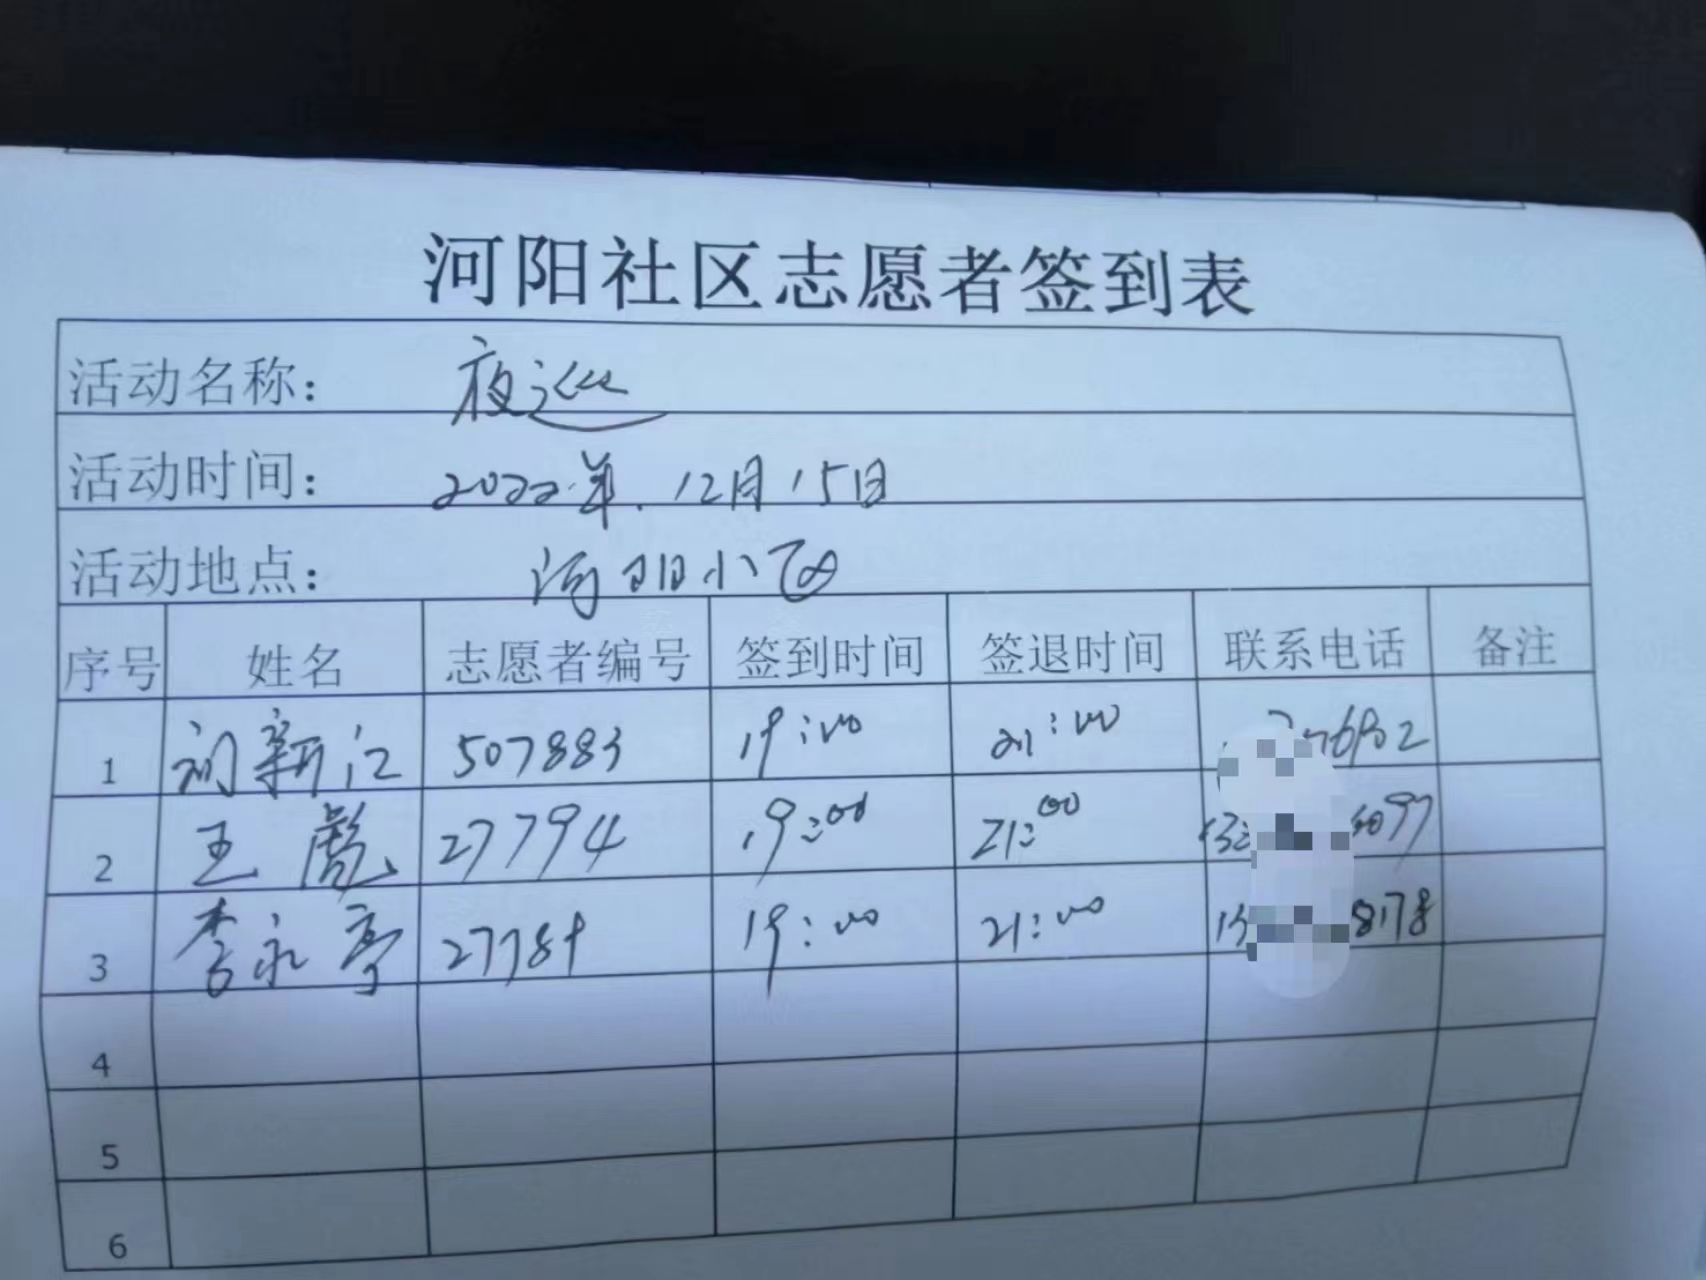 河阳社区志愿者签到表
活动名称: 夜巡
活动时间: 2022年.12月15日
活动地点: 河阳小区
序号 姓名 志愿者编号 签到时间 签退时间 联系电话 备注
1 刘新江 507883 19:00 21:00
2 王彪 27794 19:00 21:00 6097
3 李永亭 27789 19:00 21:00 8178
4
5
6